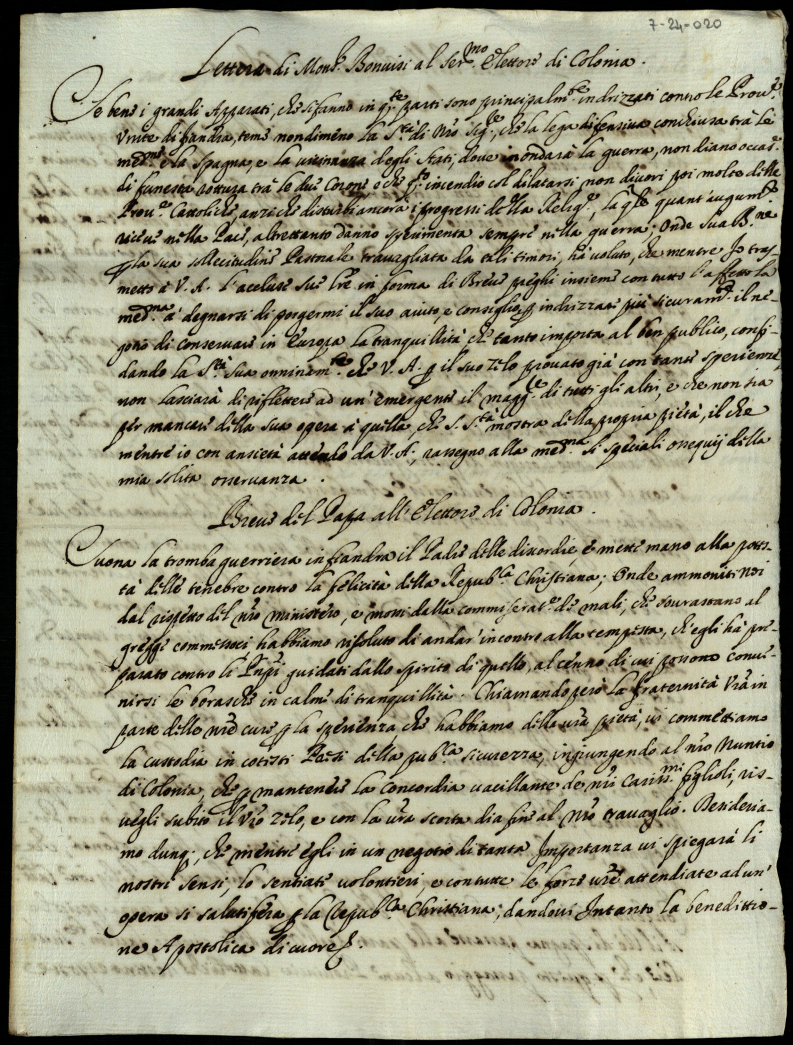 7-24-020
Lettera di Mons.r Bonuisi al Ser.mo Elettore di Colonia.
Se bene i grandi Apparati, che si fanno in q.te parti sono principalm.te indrizzati contro le Prou.e
Vnite di fiandra, teme nondimeno la S.tà di Nro Sig.re, che la lega difensiua conchiusa trà le
med.me e la Spagna, e la uicinanza degli Stati, doue inondarà la guerra, non diano occas.e
di funesta rottura trà le due Corone e che q.to incendio col dilatarsi non diuori poi molte delle
Prou.e Cattoliche, anzi che disturbi ancora i progressi della Relig.e, la q.le quant'augum.to
riceue nella Pace, altrettanto danno sperimenta sempre nella guerra; Onde Sua B.ne
p la sua sollecitudine Pastorale trauagliata da tali timori, hà uoluto, che mentre Io tras-
metto à V. A. l'accluse sue lre in forma di Breue preghi insieme con tutto l'affetto la
med.ma à degnarsi di porgermi il suo aiuto, e consiglio p indrizzare più sicuram.te il ne-
gotio di conseruare in Europa la tranquillità che tanto importa al ben publico, confi-
dando la S.tà Sua onninam.te che V. A. p il suo zelo prouato già con tante sperienze
non lasciarà di riflettere ad un'emergente il magg.re di tutti gli altri, e che non sia
per mancare della sua opera à quella, che S. S.tà mostra della propria pietà, il che
mentre io con ansietà attendo da V. A., rassegno alla med.ma li speciali ossequij della
mia solita osseruanza.
Breue del Papa all'Elettore di Colonia.
Suona la tromba guerriera in fiandra il Padre delle discordie, e mette mano alla potes-
tà delle tenebre contro la felicità della Repub.ca Christiana; Onde ammoniti noi
dal rispetto del nro ministero, e mossi dalla commiserat.e de mali, che sourastano al
gregge commessoci habbiamo risoluto di andar'incontro alla tempesta, ch'egli hà pre-
parato contro li Pnpi guidati dallo spirito di quello, al cenno di cui possono conue-
nirsi le borasche in calme di tranquillità. Chiamando però la fraternità Vra in
parte delle nre cure p la sperienza che habbiamo della ura pietà, ui commettiamo
la custodia in cotesti Paesi della pub.ca sicurezza, ingiungendo al nro Nuntio
di Colonia, che p mantenere la Concordia uacillante de nri Cariss.mi figlioli, ris-
uegli subito il Vro zelo, e con la ura scorta dia fine al nro trauaglio. Desideria-
mo dunq;, che mentre egli in un negotio di tanta Importanza ui spiegarà li
nostri sensi, lo sentiate uolontieri, e con tutte le forze ure attendiate ad un'
opera si salutifera p la Repub.ca Christiana; dandoui Intanto la benedittio-
ne Apostolica di cuore.